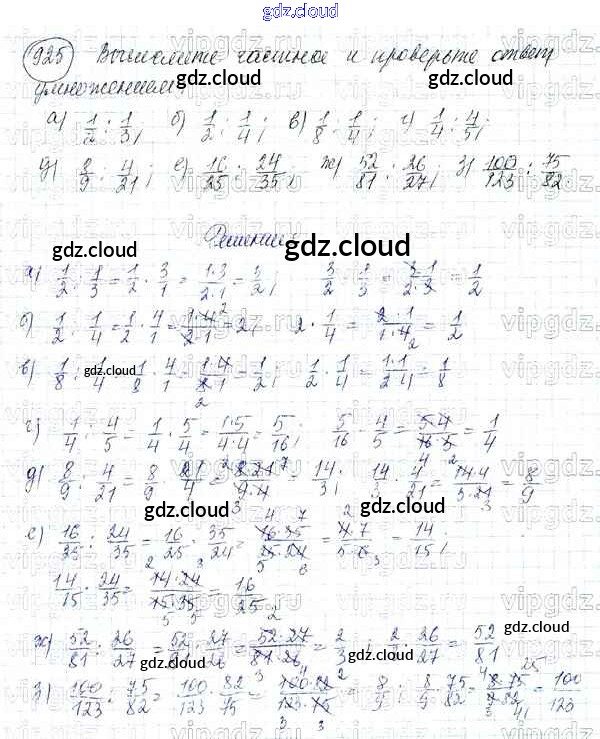 gdz.cloud
925 Вычислите частное и проверьте ответ
умножением
gdz.cloud gdz.cloud
а) 1/2 : 1/3; б) 1/2 : 1/4; в) 1/8 : 1/4; г) 1/4 : 4/5;
д) 8/9 : 4/21; е) 16/25 : 24/35; ж) 52/81 : 26/27; з) 100/123 : 75/82.
Решение
gdz.cloud
gdz.cloud gdz.cloud
а) 1/2 : 1/3 = 1/2 · 3/1 = 1·3/2·1 = 3/2; 3/2 · 1/3 = 3·1/2·3 = 1/2
б) 1/2 : 1/4 = 1/2 · 4/1 = 1·4/2·1 = 2; 2 · 1/4 = 2·1/1·4 = 1/2
в) 1/8 : 1/4 = 1/8 · 4/1 = 1·4/8·1 = 1/2; 1/2 · 1/4 = 1·1/2·4 = 1/8
gdz.cloud gdz.cloud
г) 1/4 : 4/5 = 1/4 · 5/4 = 1·5/4·4 = 5/16; 5/16 · 4/5 = 5·4/16·5 = 1/4
д) 8/9 : 4/21 = 8/9 · 21/4 = 8·21/9·4 = 14/3; 14/3 · 4/21 = 14·4/3·21 = 8/9
gdz.cloud gdz.cloud
е) 16/25 : 24/35 = 16/25 · 35/24 = 16·35/25·24 = 4·7/5·6 = 14/15;
14/15 · 24/35 = 14·24/15·35 = 16/25
gdz.cloud gdz.cloud
ж) 52/81 : 26/27 = 52/81 · 27/26 = 52·27/81·26 = 2/3; 2/3 · 26/27 = 52/81
gdz.cloud gdz.cloud
з) 100/123 : 75/82 = 100/123 · 82/75 = 100·82/123·75 = 8/9; 8/9 · 75/82 = 8·75/9·82 = 100/123
gdz.cloud gdz.cloud